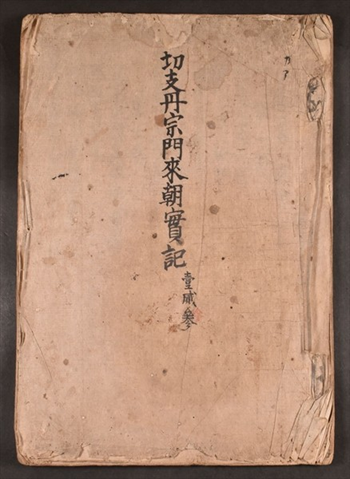 切支丹宗門來朝實記
壹貳參